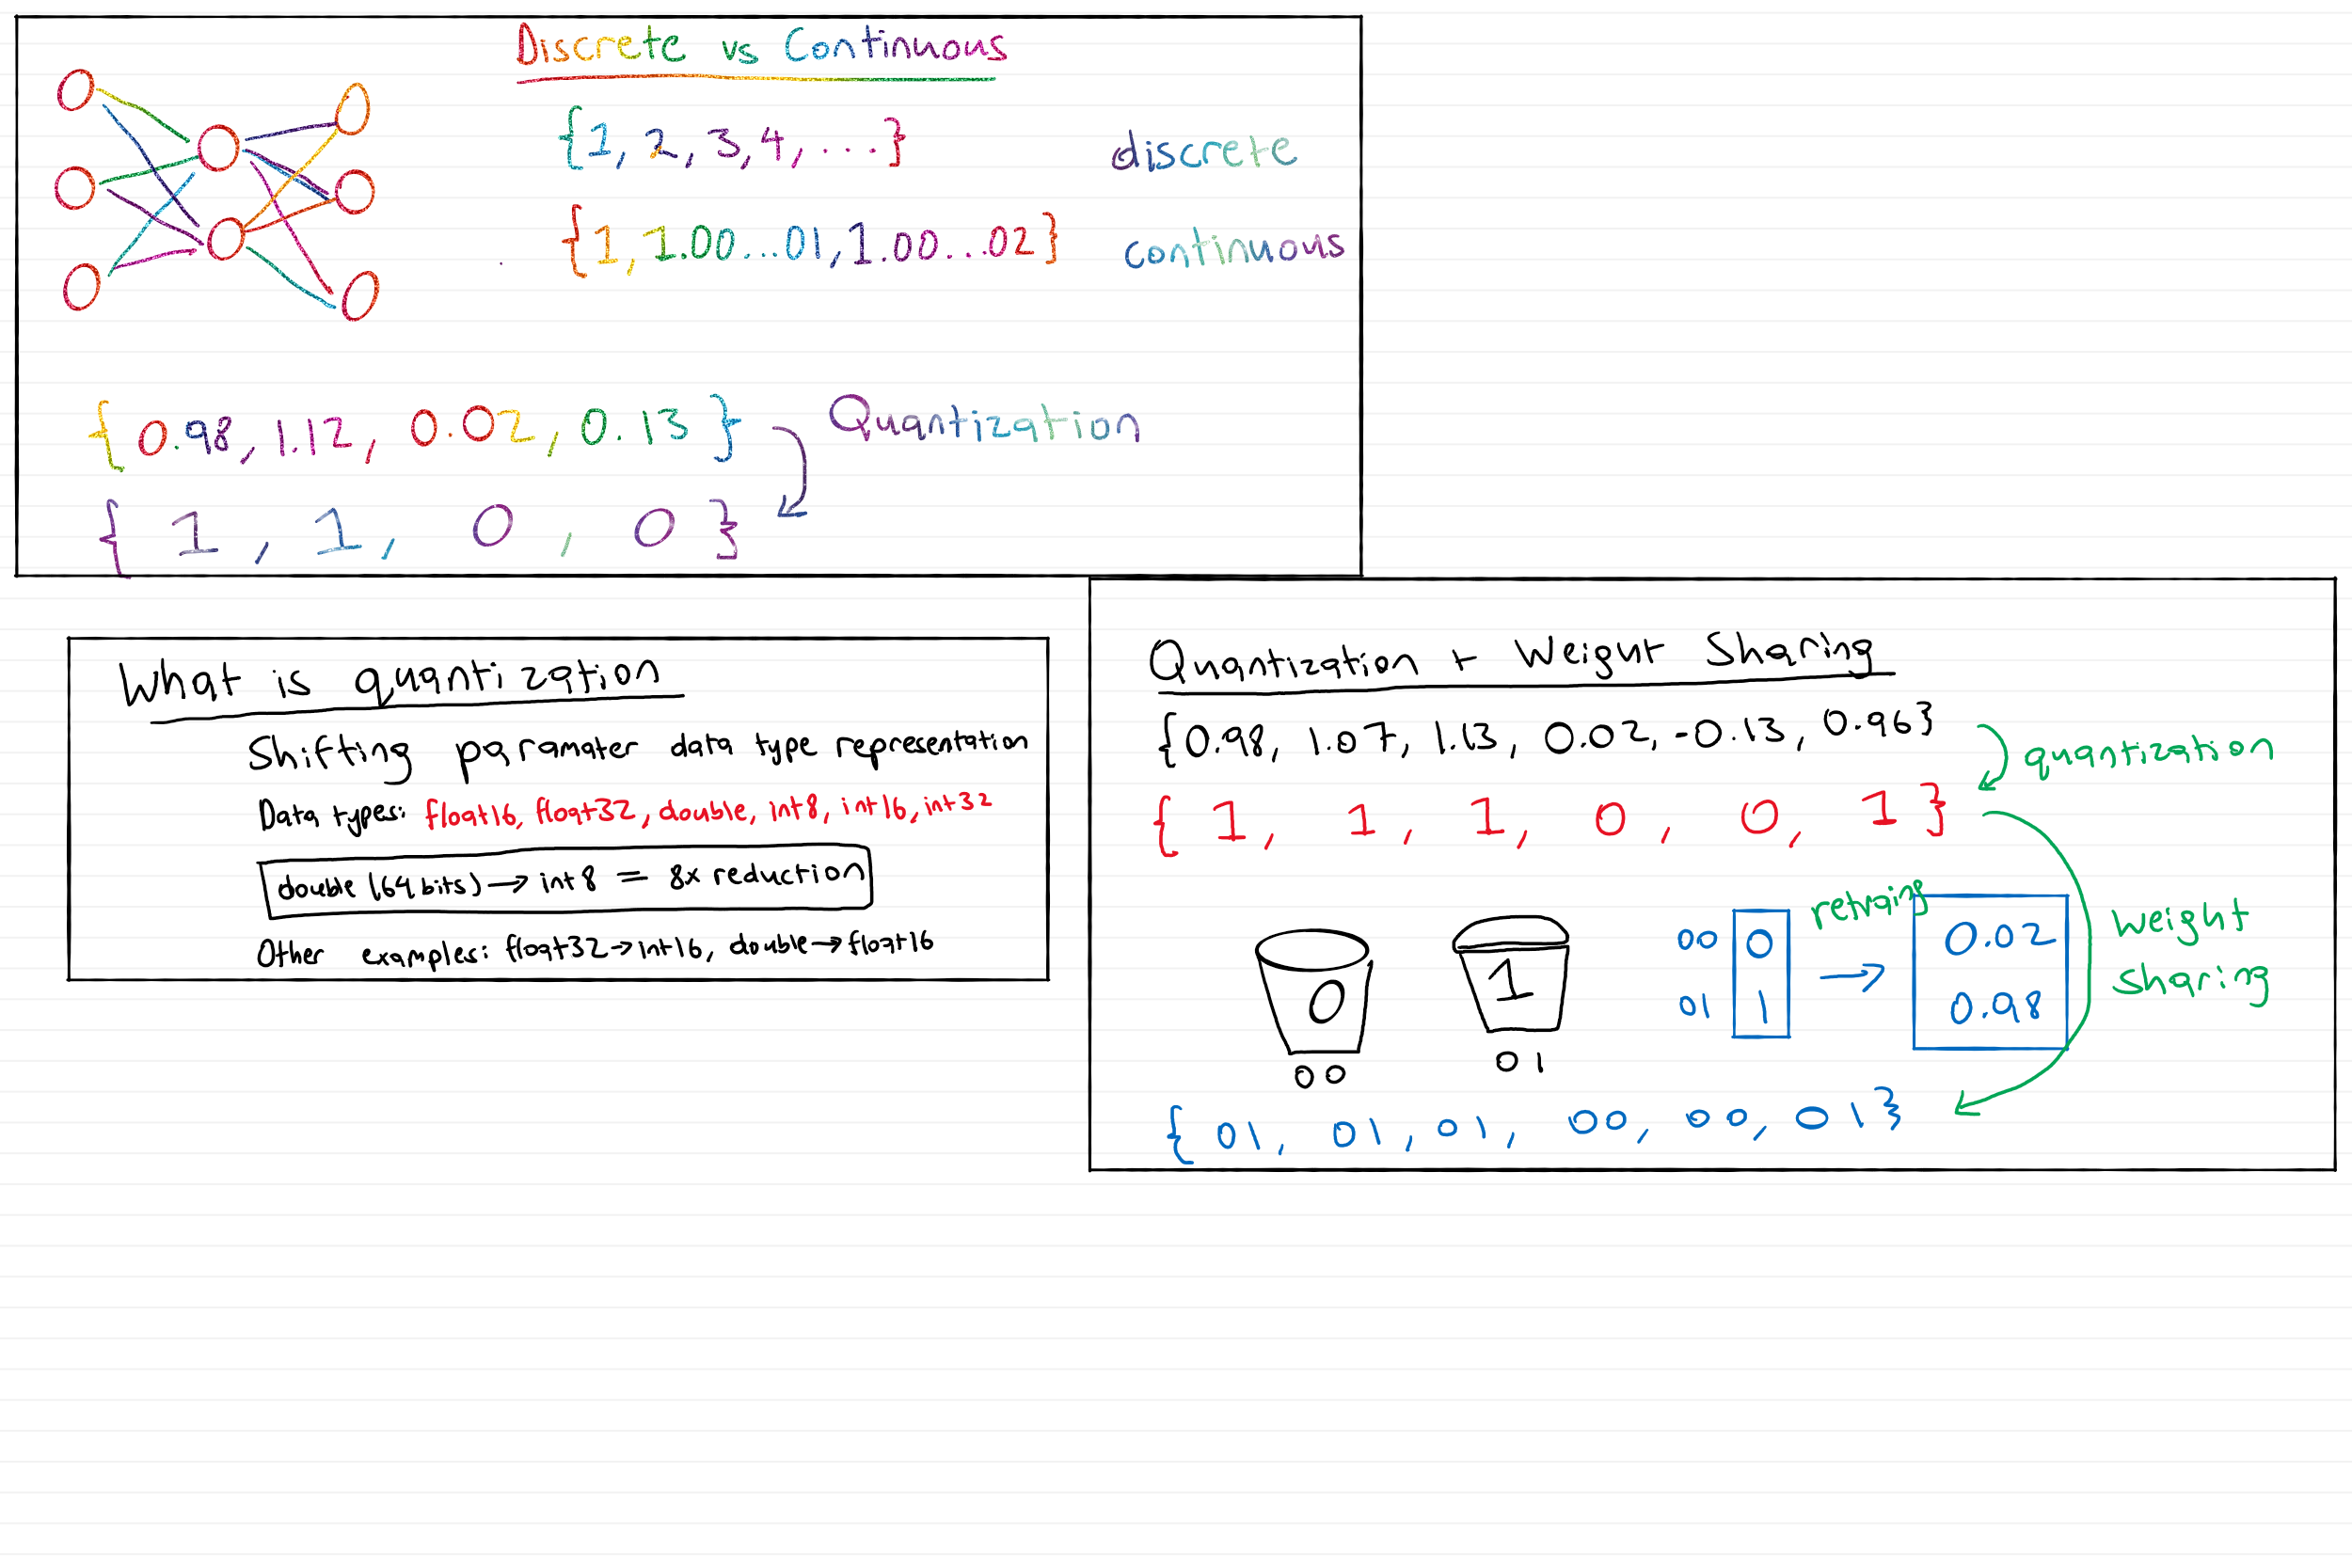 Discrete vs Continuous
{1, 2, 3, 4, ...} discrete
{1, 1.00...01, 1.00...02} continuous
{0.98, 1.12, 0.02, 0.13} Quantization
{1, 1, 0, 0}
What is quantization
Shifting paramater data type representation
Data types: float16, float32, double, int8, int16, int32
double (64 bits) → int8 = 8x reduction
Other examples: float32→int16, double→float16
Quantization + Weight Sharing
{0.98, 1.07, 1.13, 0.02, -0.13, 0.96}
quantization
{1, 1, 1, 0, 0, 1}
0
00
1
01
00 0
01 1
retraing
→
0.02
0.98
weight
sharing
{01, 01, 01, 00, 00, 01}